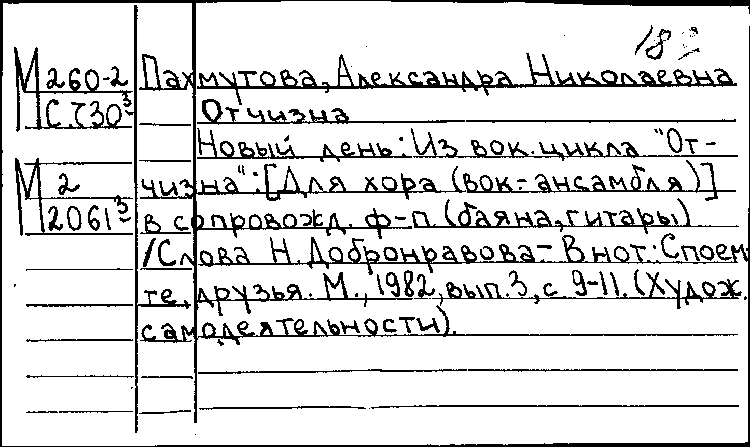 18
М 260-2 Пахмутова, Александра Николаевна
С 730³ Отчизна
Новый день: Из вок. цикла "От-
М 2 чизна": [Для хора (вок-ансамбля)]
2061³ в сопровожд. ф-п. (баяна, гитары)
/Слова Н. Добронравова – В нот: Споем-
те, друзья. М., 1982, вып. 3, с. 9-11. (Худож.
самодеятельности).